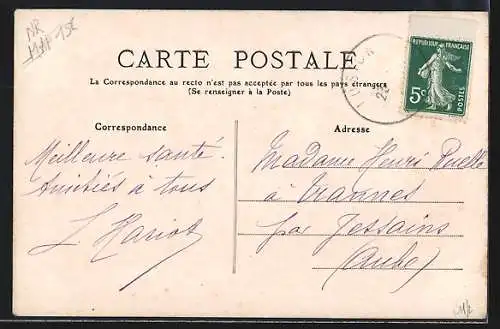 CARTE POSTALE
La Correspondance au recto n'est pas acceptée par tous les pays étrangers
(Se renseigner à la Poste)
RÉPUBLIQUE FRANÇAISE
5c
POSTES
Correspondance
Meilleure santé.
Amitiés à tous
L Hariot
Adresse
Madame Henri Ruelle
à
par Jessains
(Aube)